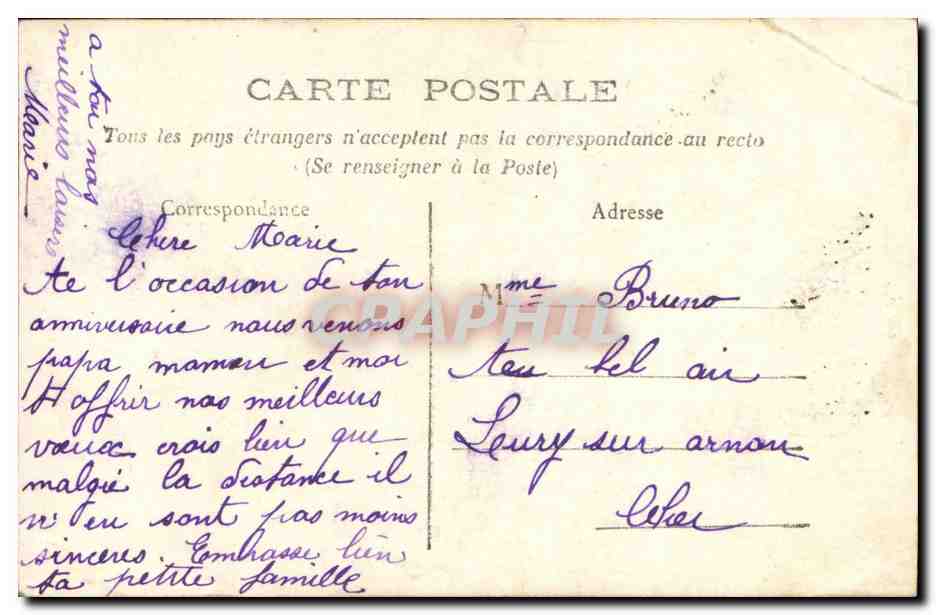 CARTE POSTALE
Tous les pays étrangers n'acceptent pas la correspondance au recto
(Se renseigner à la Poste)
Correspondance
Chere Marie
A l'occasion de ton
anniversaire nous venons
papa maman et moi
t'offrir nos meilleurs
vœux crois bien que
malgré la distance il
n'en sont pas moins
sinceres. Embrasse bien
ta petite famille
a toi nos
meilleurs baisers
Marie
Adresse
Mme Bruno
Au bel air
Lury sur arnon
Cher
CRAPHIL